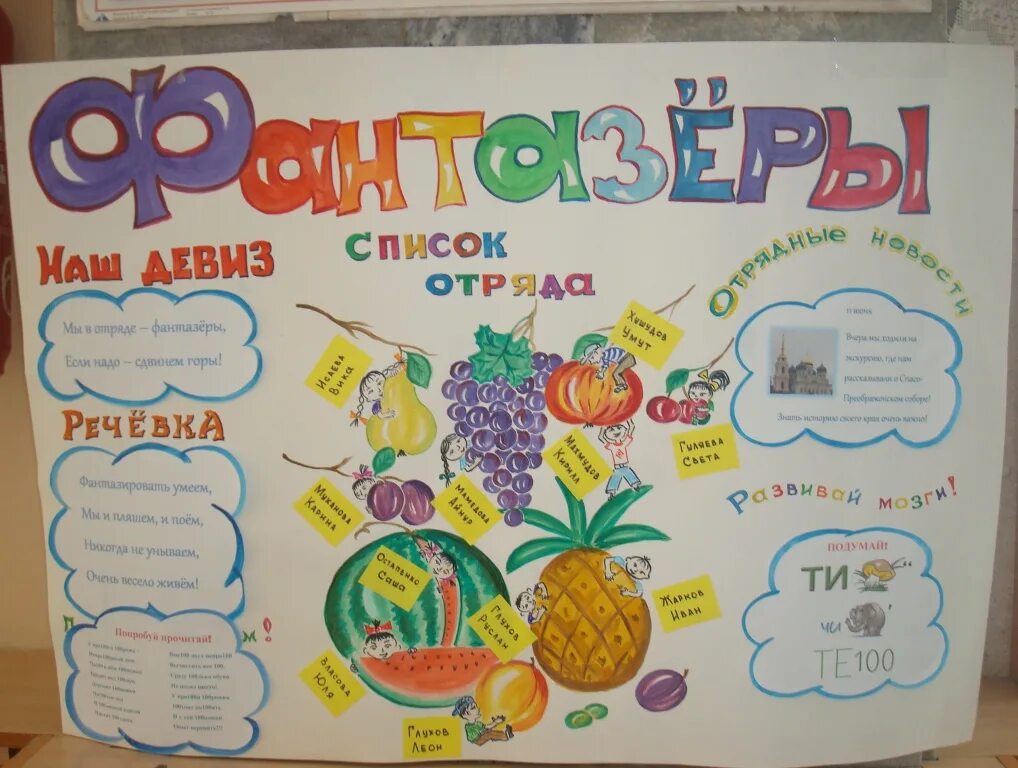 Фантазёры
Наш девиз
Мы в отряде – фантазёры,
Если надо – сдвинем горы!
Речёвка
Фантазировать умеем,
Мы и пляшем, и поём,
Никогда не унываем,
Очень весело живём!
Попробуй прочитай!
Список
отряда
Исаева
Вика
Хушудов
Умут
Гуляева
Света
Махмудов
Кирилл
Муханова
Карина
Мамедова
Айнур
Остапенко
Саша
Глухов
Руслан
Жарков
Иван
Власова
Юля
Глухов
Леон
Отрядные новости
11 июня
Вчера мы ходили на
экскурсию, где нам
рассказывали о Спасо-
Преображенском соборе!
Знать историю своего края очень важно!
Развивай мозги!
ПОДУМАЙ!
ТИ
ЧИ
ТЕ100